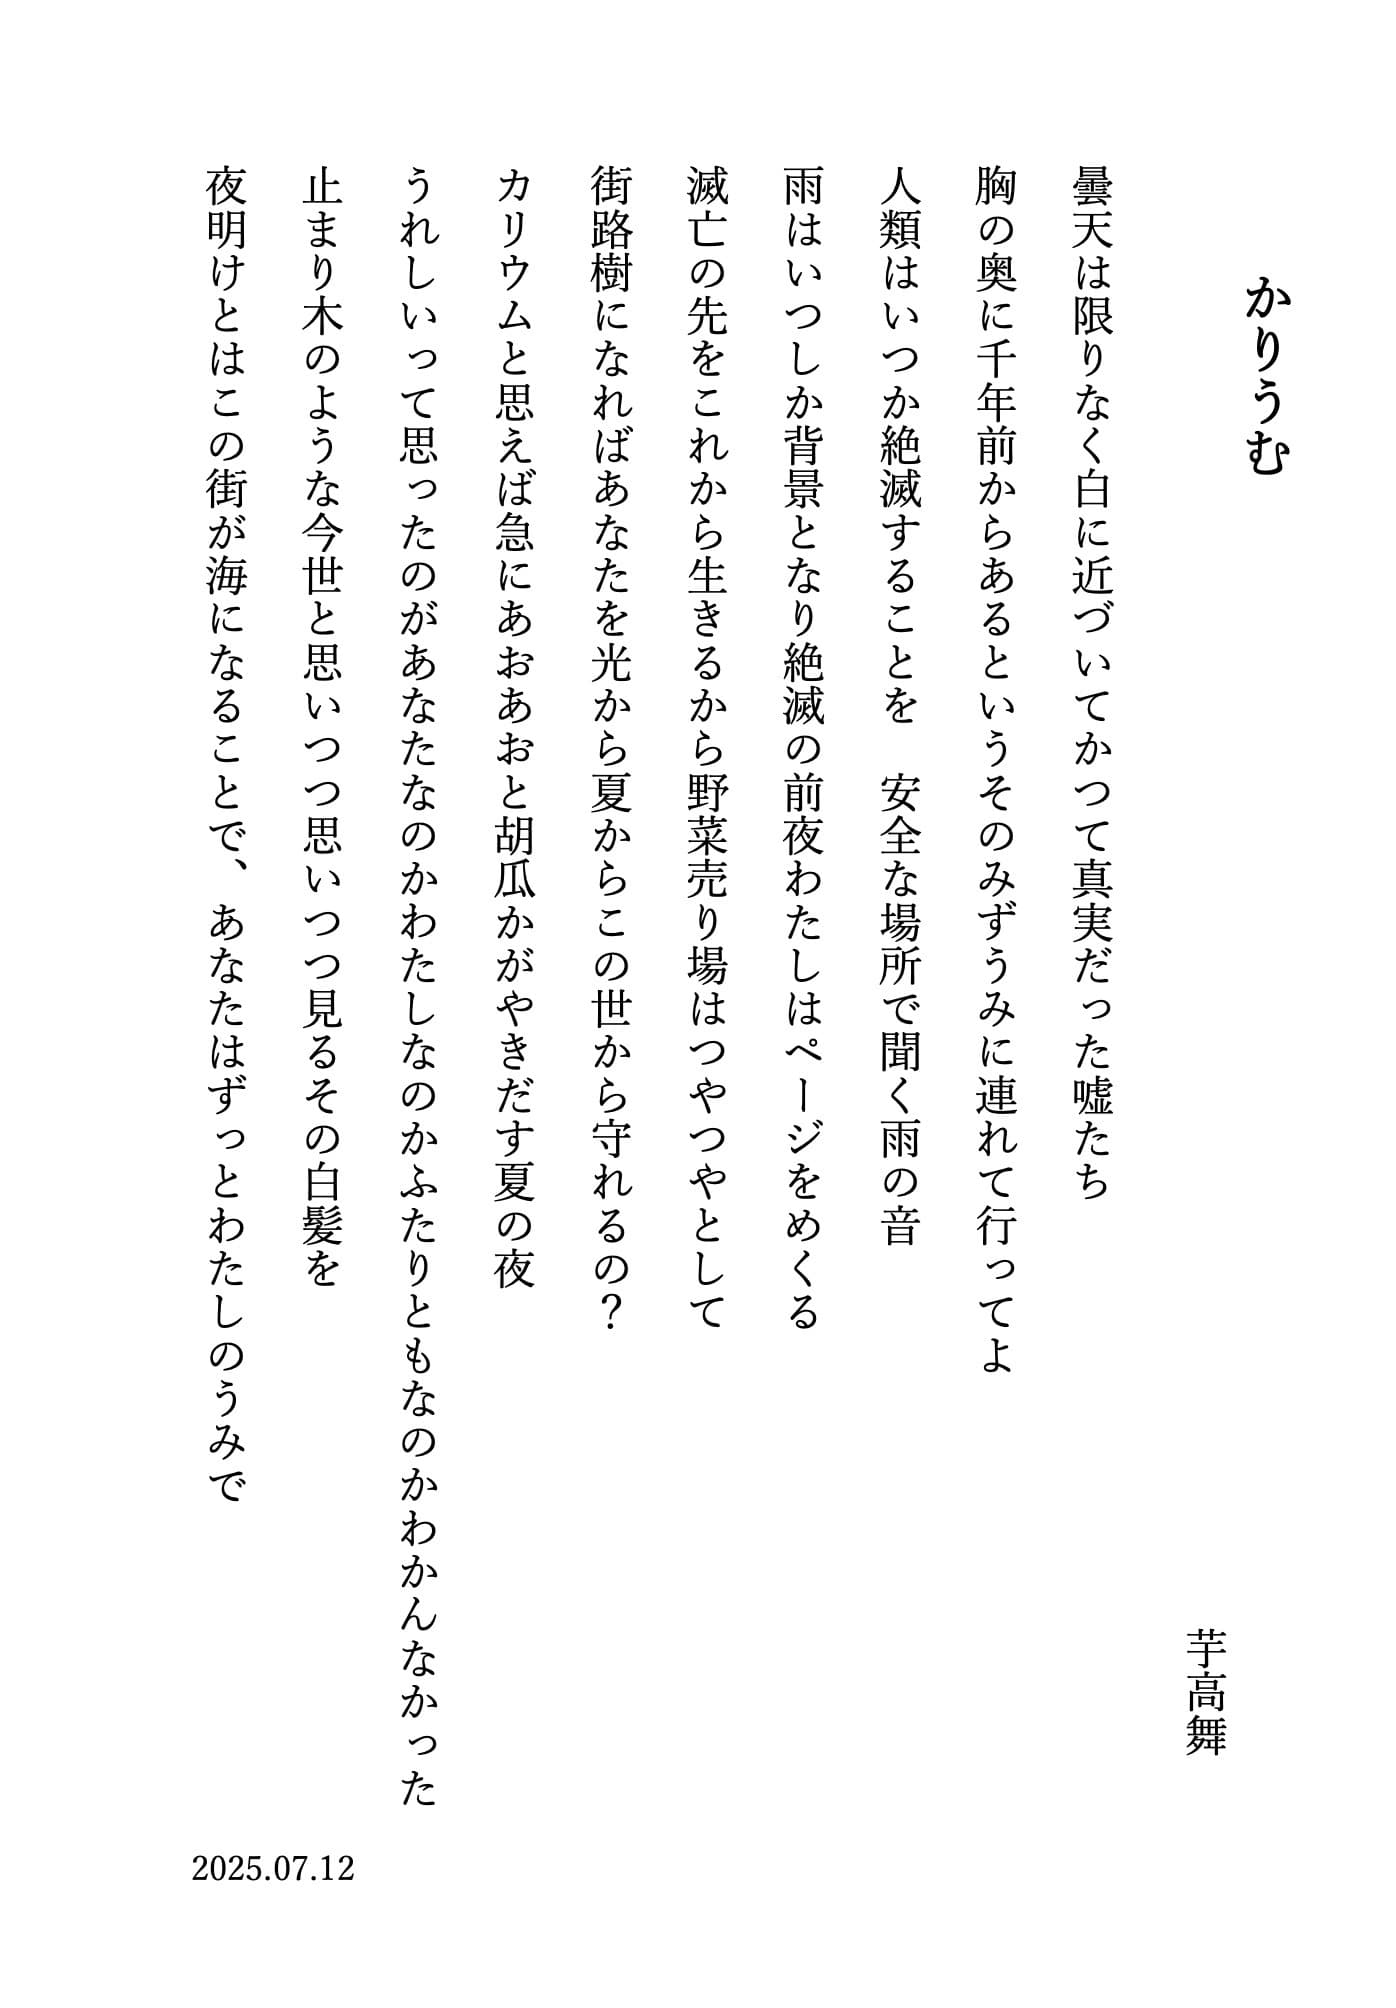 かりうむ
芋高舞
曇天は限りなく白に近づいてかつて真実だった嘘たち
胸の奥に千年前からあるというそのみずうみに連れて行ってよ
人類はいつか絶滅することを　安全な場所で聞く雨の音
雨はいつしか背景となり絶滅の前夜わたしはページをめくる
滅亡の先をこれから生きるから野菜売り場はつやつやとして
街路樹になればあなたを光から夏からこの世から守れるの？
カリウムと思えば急にあおあおと胡瓜かがやきだす夏の夜
うれしいって思ったのがあなたなのかわたしなのかふたりともなのかわかんなかった
止まり木のような今世と思いつつ思いつつ見るその白髪を
夜明けとはこの街が海になることで、あなたはずっとわたしのうみで
2025.07.12